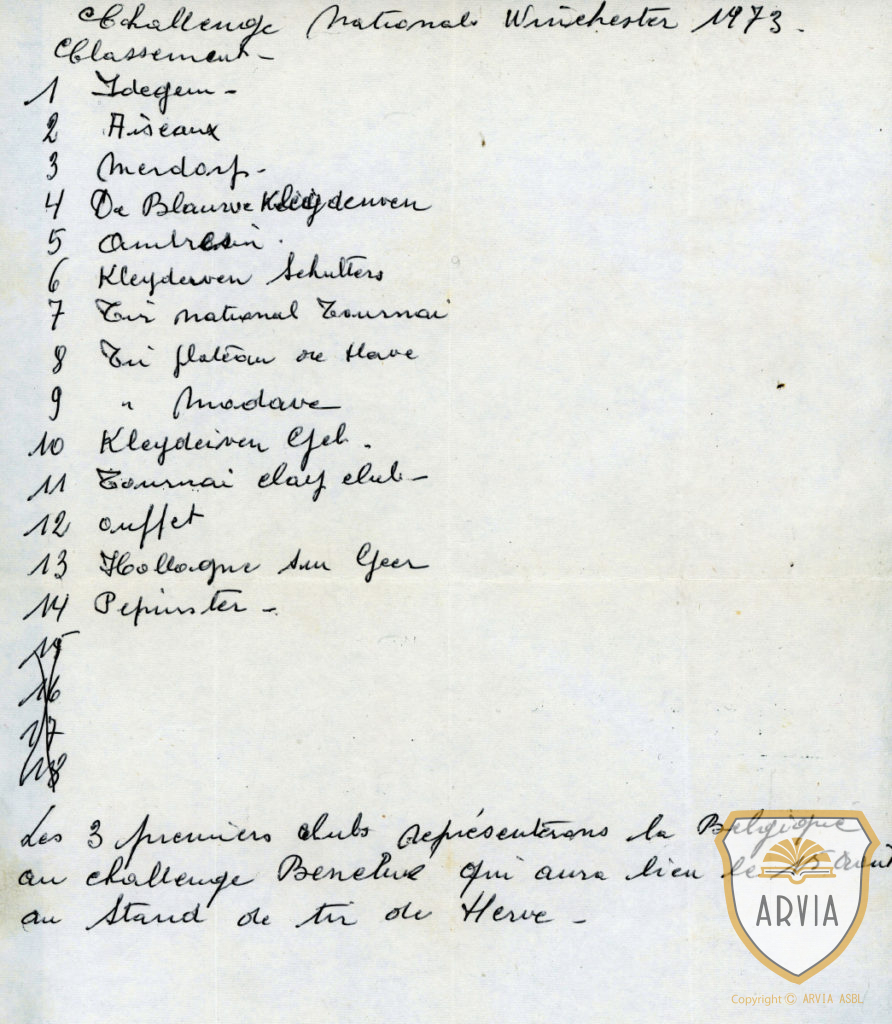 Challenge National Winchester 1973.
Classement -
1 Idegem -
2 Aiseaux
3 Merdorp -
4 De Blauwe Kleyduiven
5 Ambresin.
6 Kleyduiven Schutters
7 Tir national Tournai
8 Tir plateau de Have
9 " Modave
10 Kleyduiven Gel.
11 Tournai clay club -
12 ouffet
13 Hollogne sur Geer
14 Pepinster -
15
16
17
18
Les 3 premiers clubs représenterons la Belgique
au challenge Benelux qui aura lieu le 15 Aout
au Stand de tir de Herve -
ARVIA
Copyright © ARVIA ASBL